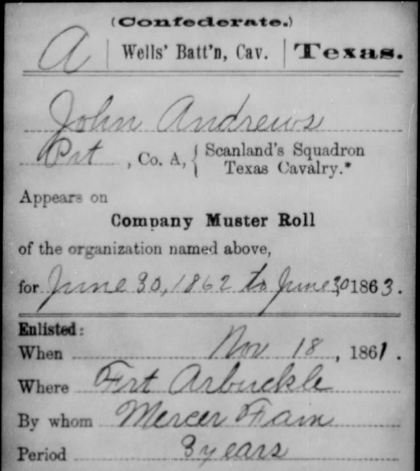 (Confederate.)
A | Wells' Batt'n, Cav. | Texas.
John Andrews
Pvt, Co. A, { Scanland's Squadron
Texas Cavalry.*
Appears on
Company Muster Roll
of the organization named above,
for June 30, 1862 to June 30, 1863.
Enlisted:
When Nov 18, 1861.
Where Fort Arbuckle
By whom Mercer Fain
Period 3 years